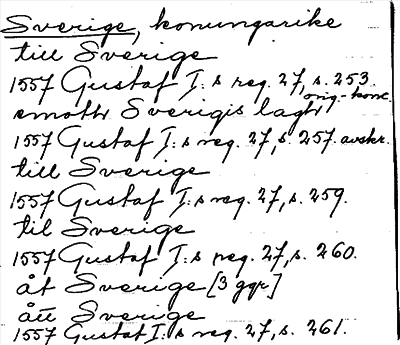 Sverige, konungarike
till Sverige
1557 Gustaf I:s reg. 27, s. 253.
orig.-konc.
emoth Sverigis lagh
1557 Gustaf I:s reg. 27, s. 257. avskr.
till Sverige
1557 Gustaf I:s reg. 27, s. 259.
til Sverige
1557 Gustaf I:s reg. 27, s. 260.
åt Sverige [3 ggr]
ått Sverige
1557 Gustaf I:s reg. 27, s. 261.